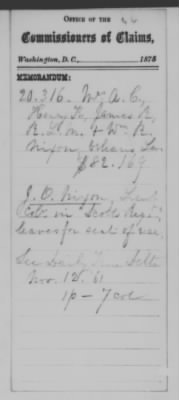 OFFICE OF THE
Commissioners of Claims,
Washington, D. C., 1875
MEMORANDUM:
20.316. Wm A. C.
Henry, James R.
R. &
Nixon, Orleans La.
$82.169
J. O. Nixon, Lieut
Col. in Scotts Regt
leaves for seat of war.
See Daily True Delta
Nov. 12. 61
1p - 7 col